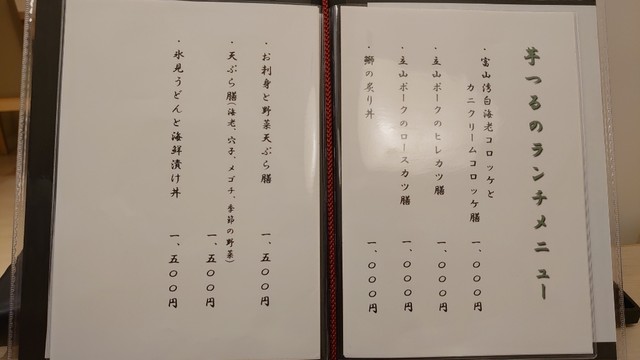 芋つるのランチメニュー
・富山湾白海老コロッケと
カニクリームコロッケ膳 一、〇〇〇円
・立山ポークのヒレカツ膳 一、〇〇〇円
・立山ポークのロースカツ膳 一、〇〇〇円
・鰤の炙り丼 一、〇〇〇円
・お刺身と野菜天ぷら膳 一、五〇〇円
・天ぷら膳(海老、穴子、メゴチ、季節の野菜)
一、五〇〇円
・氷見うどんと海鮮漬け丼 一、五〇〇円